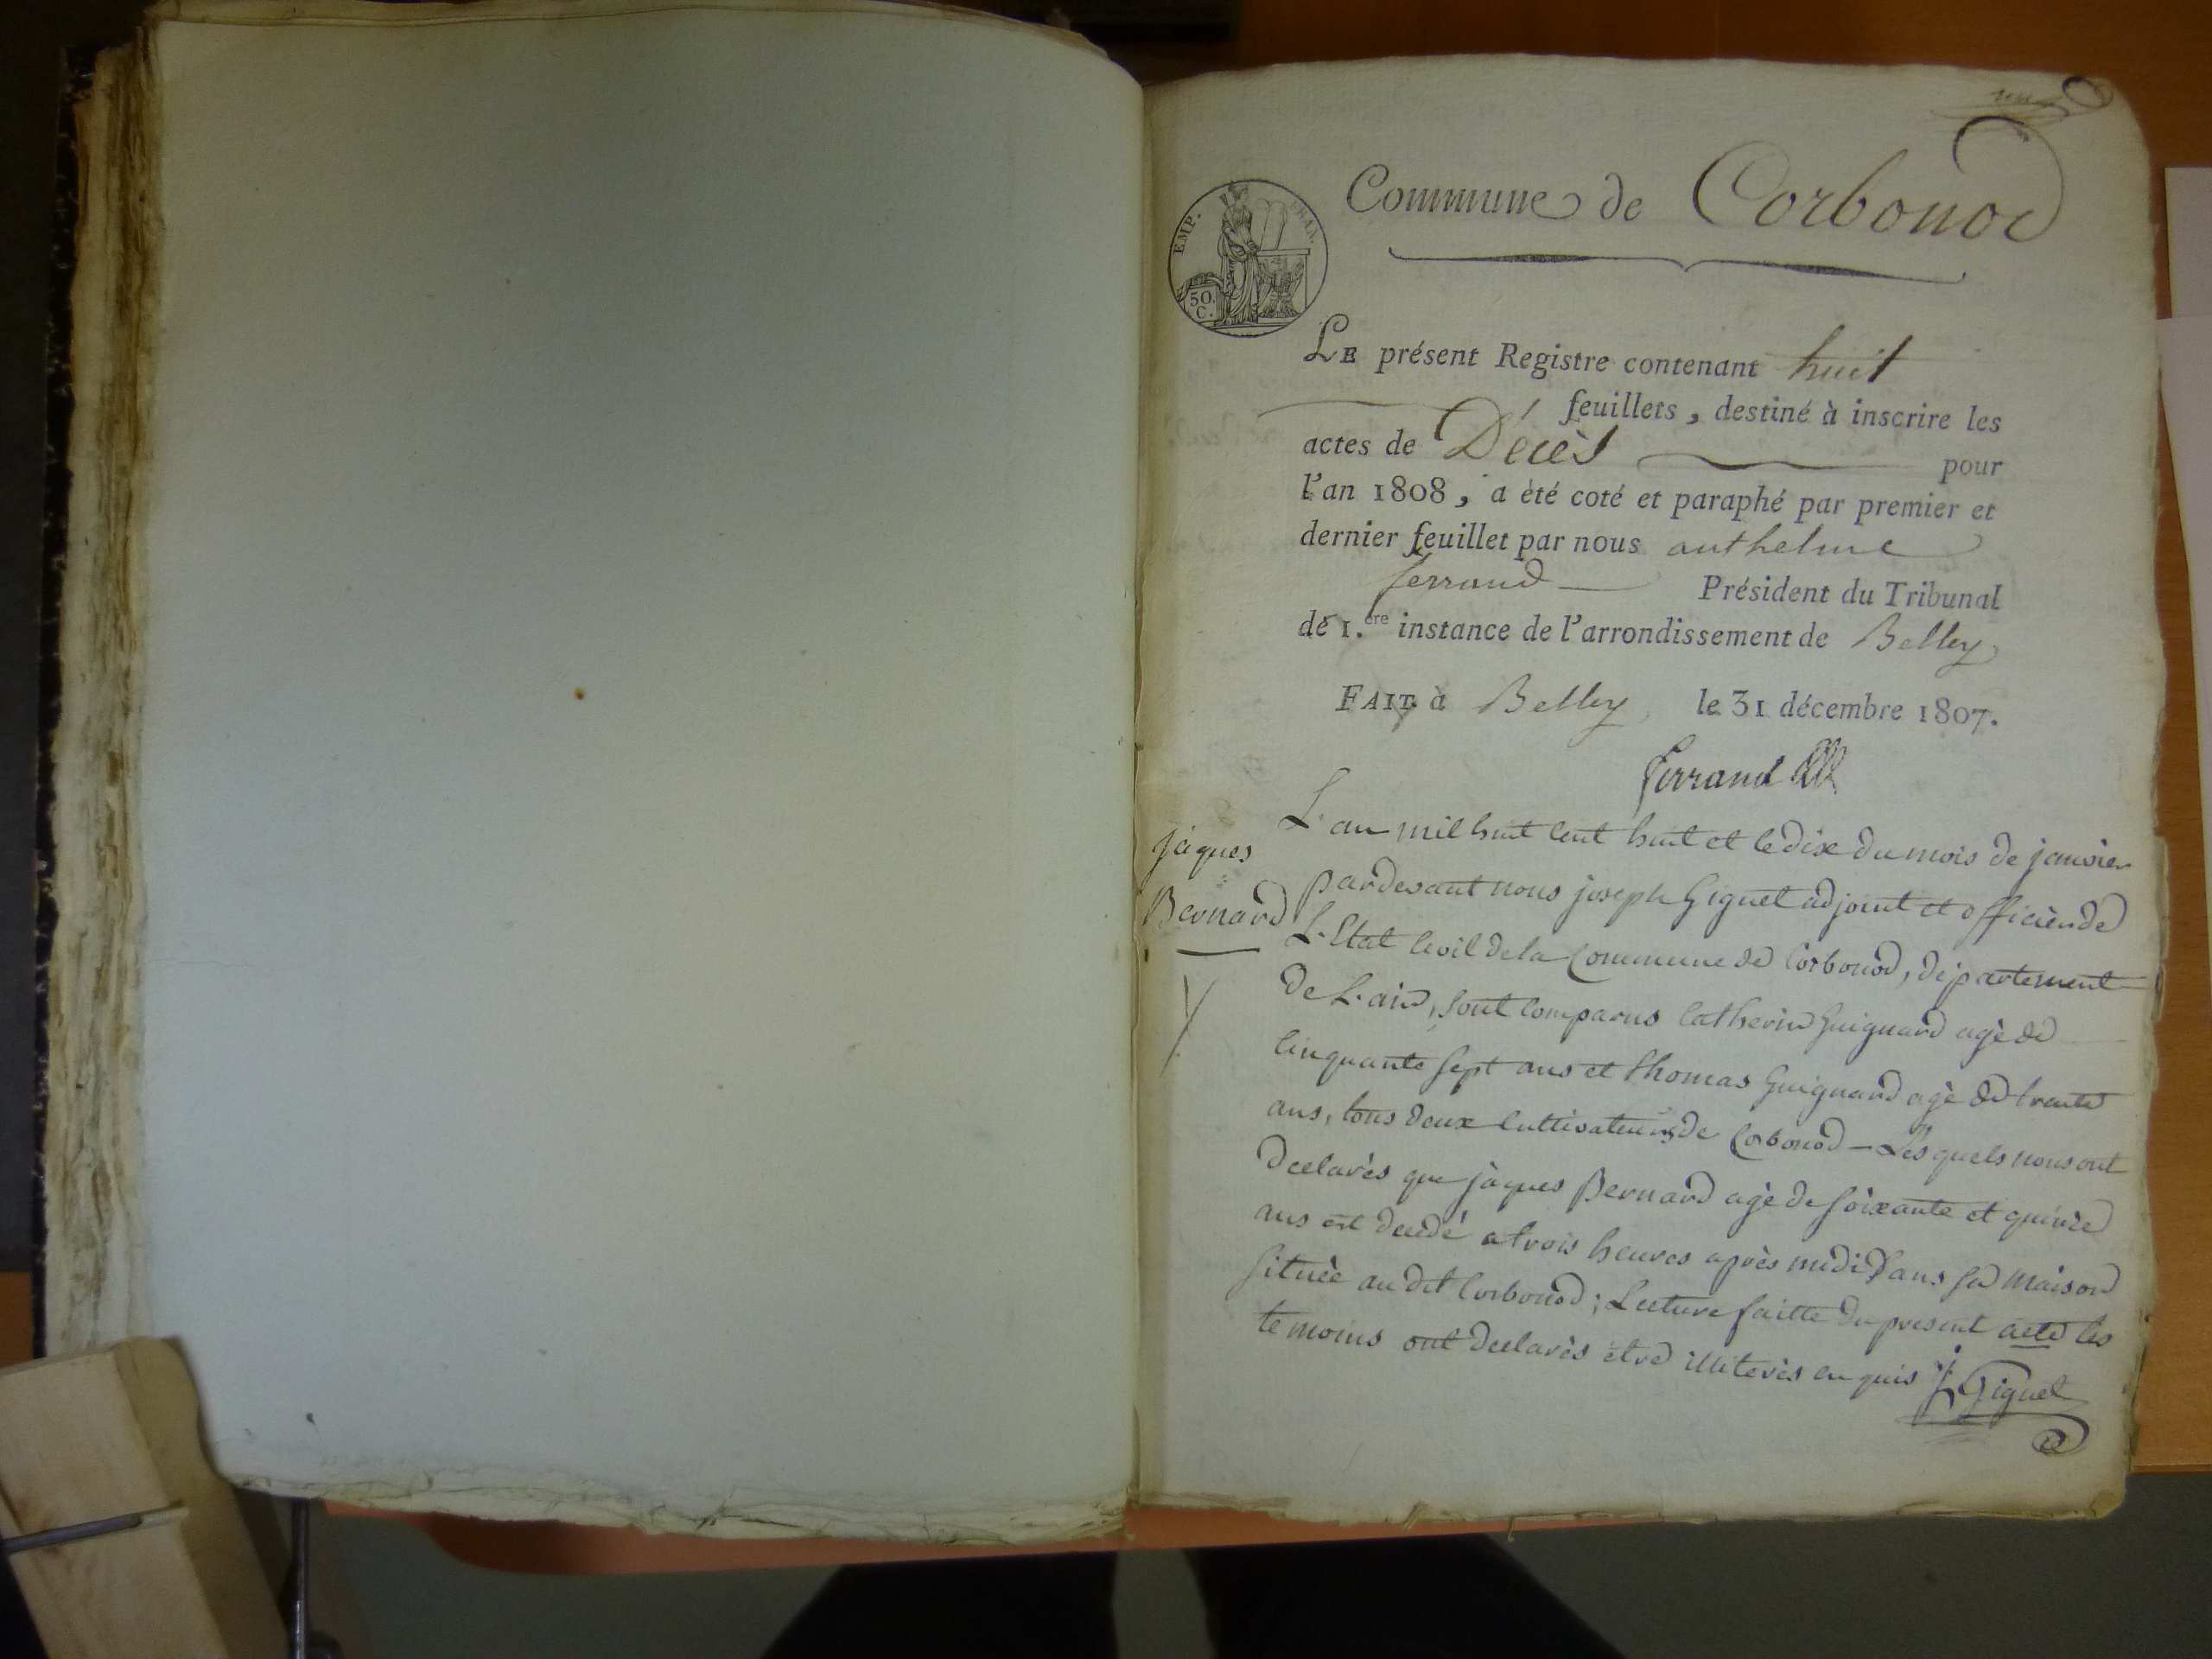 une
Commune de Corbonod
EMP. FRAN.
50.
C.
LE présent Registre contenant huit
feuillets, destiné à inscrire les
actes de Décès pour
l'an 1808, a été coté et paraphé par premier et
dernier feuillet par nous anthelme
ferrand Président du Tribunal
de 1.ere instance de l'arrondissement de Belley
FAIT à Belley le 31 décembre 1807.
ferrand
jàques
Bernard
L'an mil huit Cent huit et le dix du mois de janvier
pardevant nous joseph Giguet adjoint et officièr de
L'Etat Civil de la Commune de Corbonod, département
de L'ain, sont Comparus Catherin Guignard agè de
Cinquante sept ans et thomas Guignard agè de trente
ans, tous deux Cultivateurs de Corbonod - Les quels nous ont
declarès que jàques Bernard agè de soixante et quinze
ans est decedé a trois heures après midi dans sa maison
situèe au dit Corbonod ; Lecture faitte du present acte les
temoins ont declarès être illiterès enquis
J Giguet